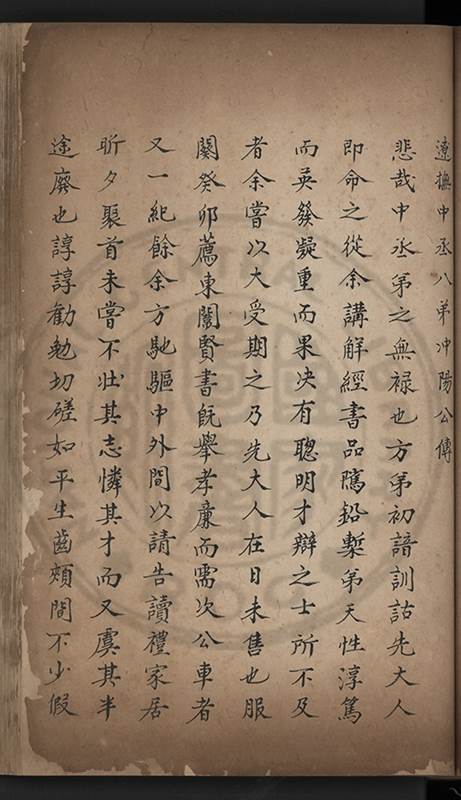 遼撫中丞八弟冲陽公傳
悲哉中丞弟之無禄也方弟初諳訓詁先大人
即命之從余講解經書品隲鉛槧弟天性淳篤
而英發凝重而果决有聰明才辯之士所不及
者余嘗以大受期之乃先大人在日未售也服
闋癸卯薦東闈賢書旣舉孝廉而需次公車者
又一紀餘余方馳驅中外間以請告讀禮家居
昕夕聚首未嘗不壯其志憐其才而又虞其半
途廢也諄諄勸勉切磋如平生齒頰間不少假